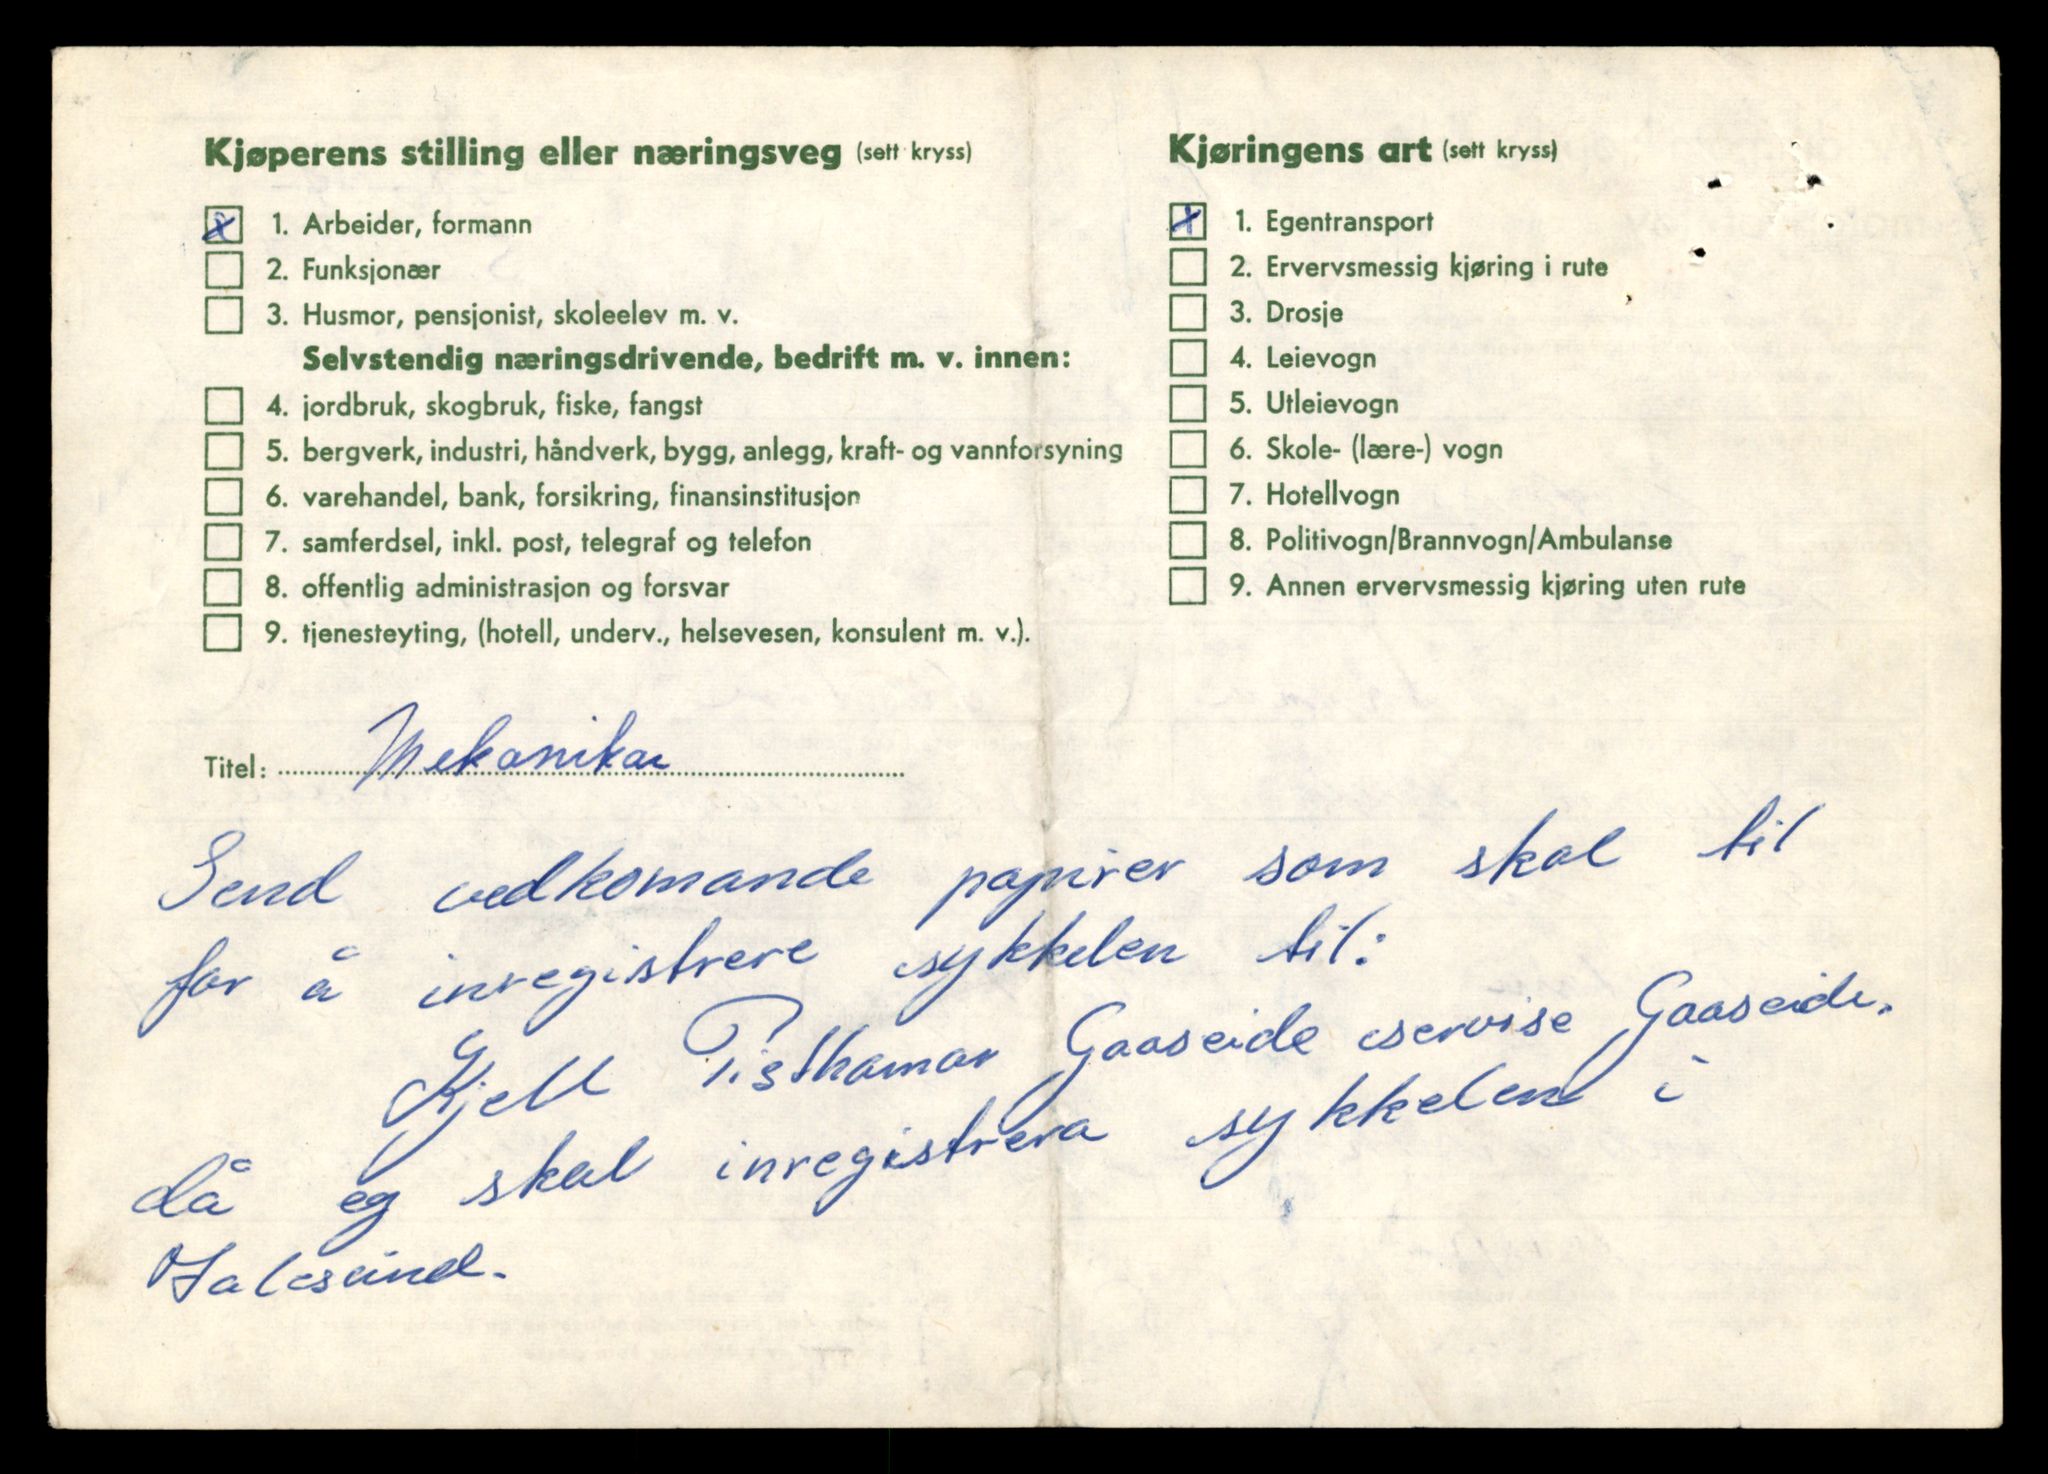 Kjøperens stilling eller næringsveg (sett kryss)
x 1. Arbeider, formann
2. Funksjonær
3. Husmor, pensjonist, skoleelev m. v.
Selvstendig næringsdrivende, bedrift m. v. innen:
4. jordbruk, skogbruk, fiske, fangst
5. bergverk, industri, håndverk, bygg, anlegg, kraft- og vannforsyning
6. varehandel, bank, forsikring, finansinstitusjon
7. samferdsel, inkl. post, telegraf og telefon
8. offentlig administrasjon og forsvar
9. tjenesteyting, (hotell, underv., helsevesen, konsulent m. v.).
Kjøringens art (sett kryss)
x 1. Egentransport
2. Ervervsmessig kjøring i rute
3. Drosje
4. Leievogn
5. Utleievogn
6. Skole- (lære-) vogn
7. Hotellvogn
8. Politivogn/Brannvogn/Ambulanse
9. Annen ervervsmessig kjøring uten rute
Titel: Mekanikar
Send vedkomande papirer som skal til
for å inregistrere sykkelen til:
Kjell Gaaseide servise Gaaseide.
då eg skal inregistrera sykkelen i